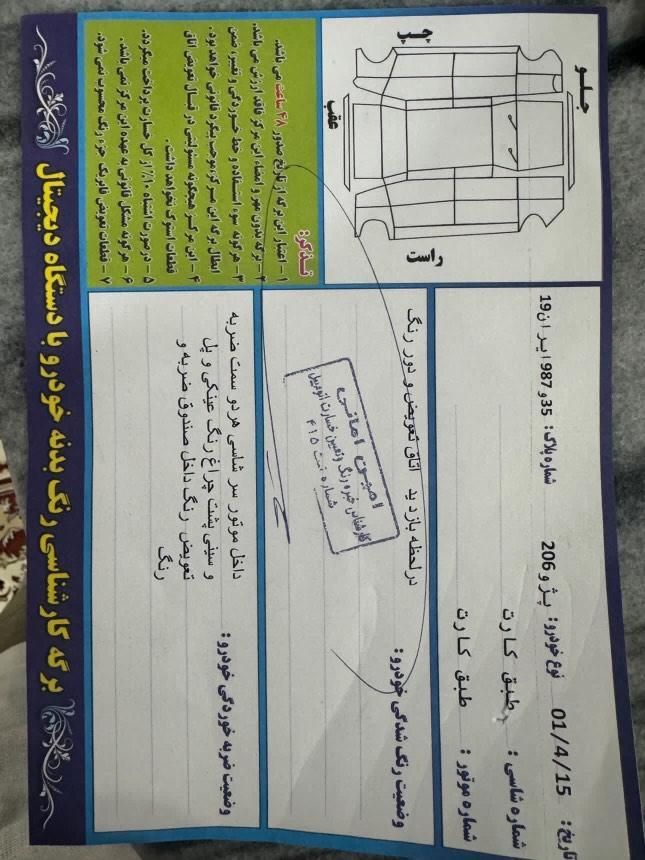 برگه کارشناسی رنگ بدنه خودرو با دستگاه دیجیتال
تاریخ: 01/4/15
نوع خودرو: پژو 206
شماره پلاک: 35و987 ایران19
شماره شاسی: طبق کارت
شماره موتور: طبق کارت
جلو
چپ
عقب
راست
وضعیت رنگ شدگی خودرو:
درلحظه بازدید اتاق تعویض و دور رنگ
امیـن امانـی
کارشناس خبره رنگ وتعیین خسارت اتومبیل
شماره ثبت ۴۱۵
وضعیت ضربه خوردگی خودرو:
داخل موتور سر شاسی هردو سمت ضربه
و سینی پشت چراغ رنگ عینکی و پل
تعویض رنگ داخل صندوق ضربه و
رنگ
تذکر:
۱ – اعتبار این برگه از تاریخ صدور ۴۸ ساعت می باشد.
۲ – برگه بدون مهر و امضاء این مرکز فاقد ارزش می باشد.
۳ – هرگونه سوء استفاده و خط خوردگی و تغییر، ضمن
ابطال برگه این مرکز موجب پیگرد قانونی خواهد بود.
۴ – این مرکز هیچگونه مسئولیتی در قبال تعویض اتاق
قطعات استوک نخواهد داشت.
۵ – درصورت اشتباه ۱۰٪ از کل خسارت پرداخت میگردد.
۶ – هرگونه مشکل قانونی به عهده این مرکز نمی باشد.
۷ – قطعات تعویض فابریک جزء رنگ محسوب نمی شود.